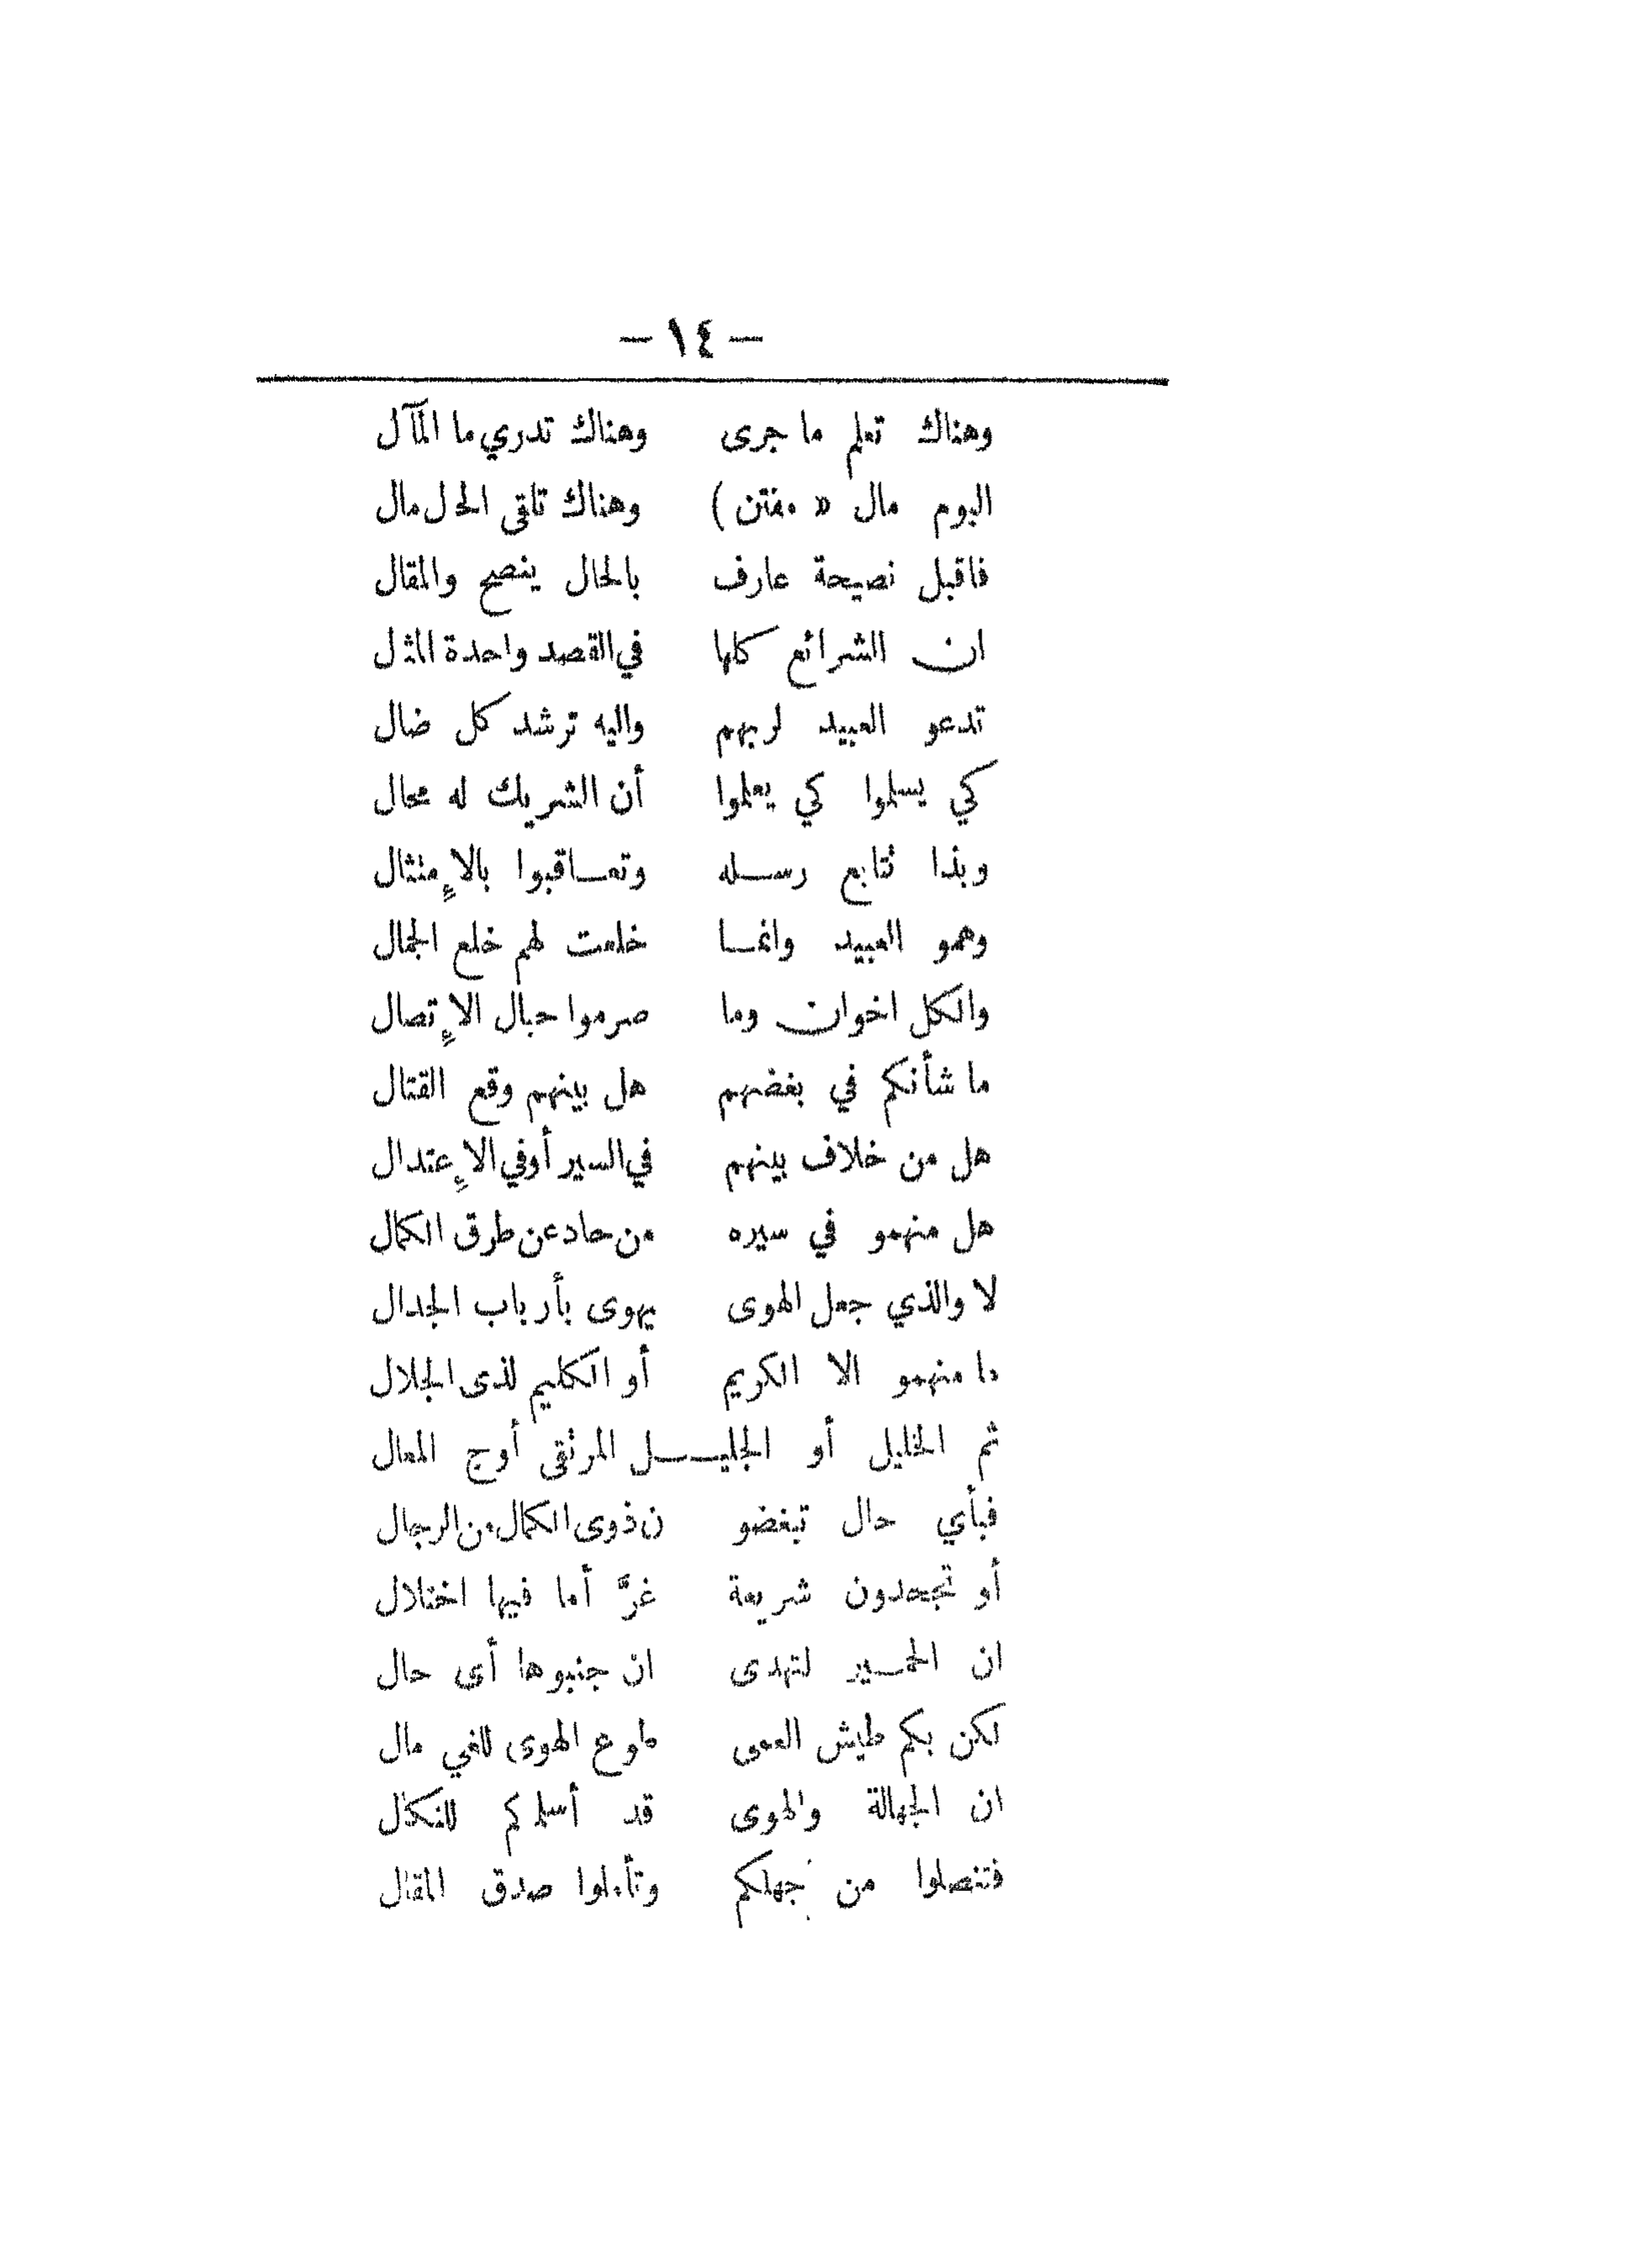 — ١٤ —
وهناك تعلم ما جرى وهناك تدري ما المآل
اليوم مال « مفتن ) وهناك تلقى الحال مال
فاقبل نصيحة عارف بالحال ينصح والمقال
ان الشرائع كلها في القصد واحدة المثال
تدعو العبيد لربهم واليه ترشد كل ضال
كي يسلموا كي يعلموا أن الشريك له محال
وبذا تتابع رسله وتعاقبوا بالإمتثال
وهمو العبيد وانما خلعت لهم خلع الجمال
والكل اخوان وما صرموا حبال الإتصال
ما شأنكم في بغضهم هل بينهم وقع القتال
هل من خلاف بينهم في السير أو في الإعتدال
هل منهمو في سيره من حاد عن طرق الكمال
لا والذي جعل الهوى يهوى بأرباب الجدال
ما منهمو الا الكريم أو الكليم لذى الجلال
ثم الخليل أو الجليل المرتقى أوج المعال
فبأي حال تبغضو ن ذوى الكمال من الرجال
أو تجحدون شريعة غرَّ أما فيها اختلال
ان الحمير لتهدى ان جنبوها أى حال
لكن بكم طيش العمى طوع الهوى للغي مال
ان الجهالة والهوى قد أسلمكم للنكال
فتنصلوا من جهلكم وتأملوا صدق المقال